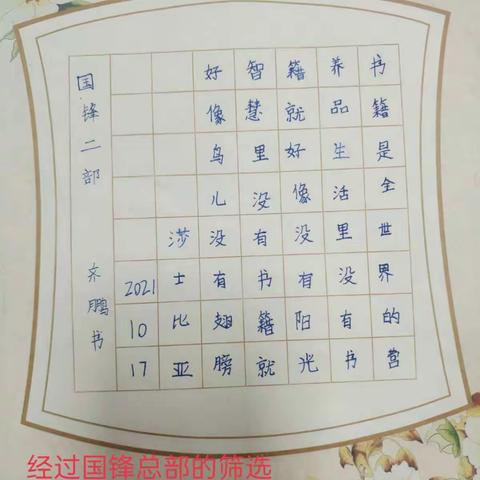 书籍是全世界的营
养品生活里没有书
籍就好像没有阳光
智慧里没有书籍就
好像鸟儿没有翅膀
莎士比亚
2021 10 17
国锋二部 齐鹏书
经过国锋总部的筛选